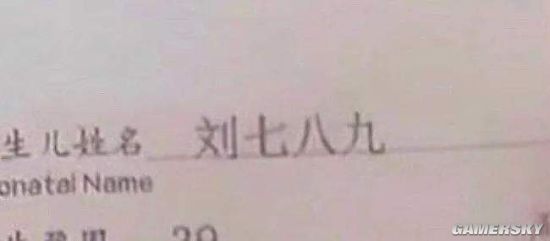 生儿姓名 刘七八九
onatal Name
39
GAMERSKY